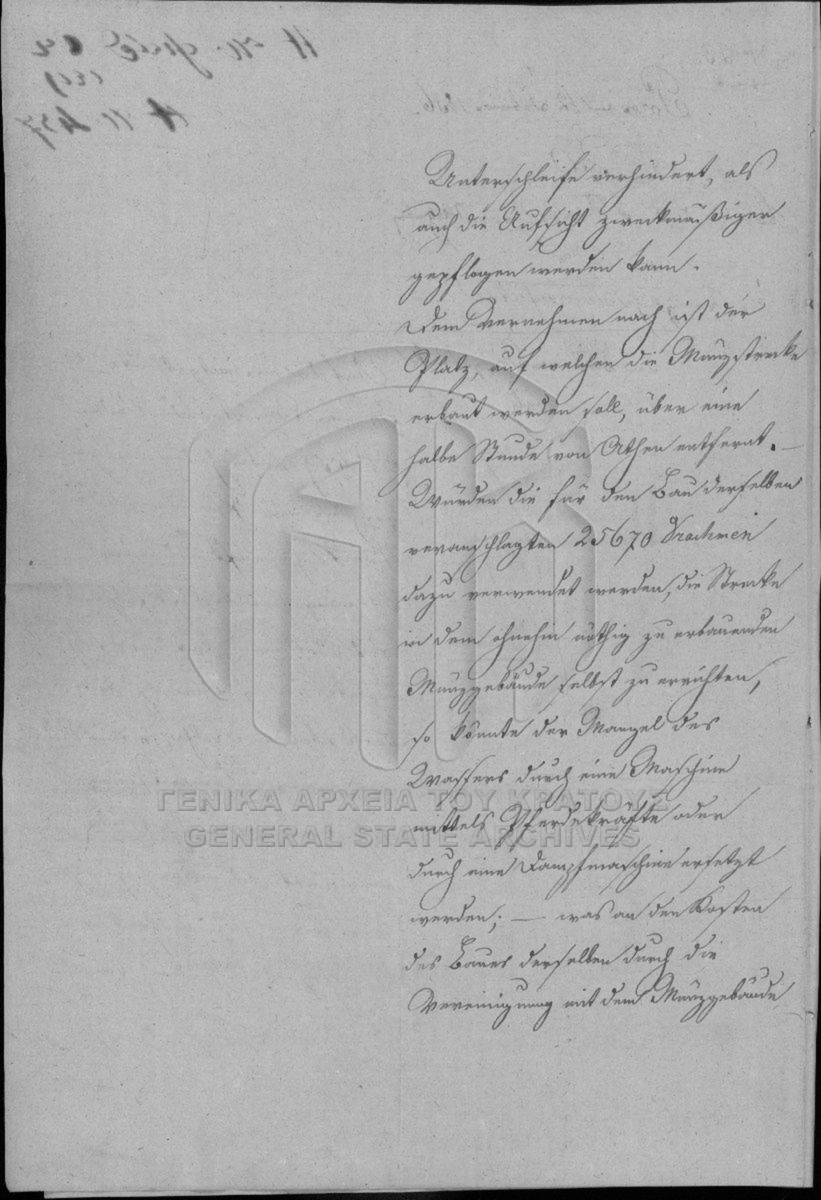 Unterschleife verhindert, als
auch die Aufsicht zweckmäßiger
gepflogen werden kann.
Dem Vernehmen nach ist der
Platz, auf welchen die Münzstrecke
erbaut werden soll, über eine
halbe Stunde von Athen entfernt. —
Würden die für den Bau derselben
veranschlagten 25670 Drachmen
dazu verwendet werden, die Strecke
in dem ohnehin nöthig zu erbauenden
Münzgebäude selbst zu errichten,
so könnte der Mangel des
Wassers durch eine Maschine
mittels Pferdekräfte oder
durch eine Dampfmaschine ersetzt
werden; — was an den Kosten
des Baues derselben durch die
Vereinigung mit dem Münzgebäude
ΓΕΝΙΚΑ ΑΡΧΕΙΑ ΤΟΥ ΚΡΑΤΟΥΣ
GENERAL STATE ARCHIVES